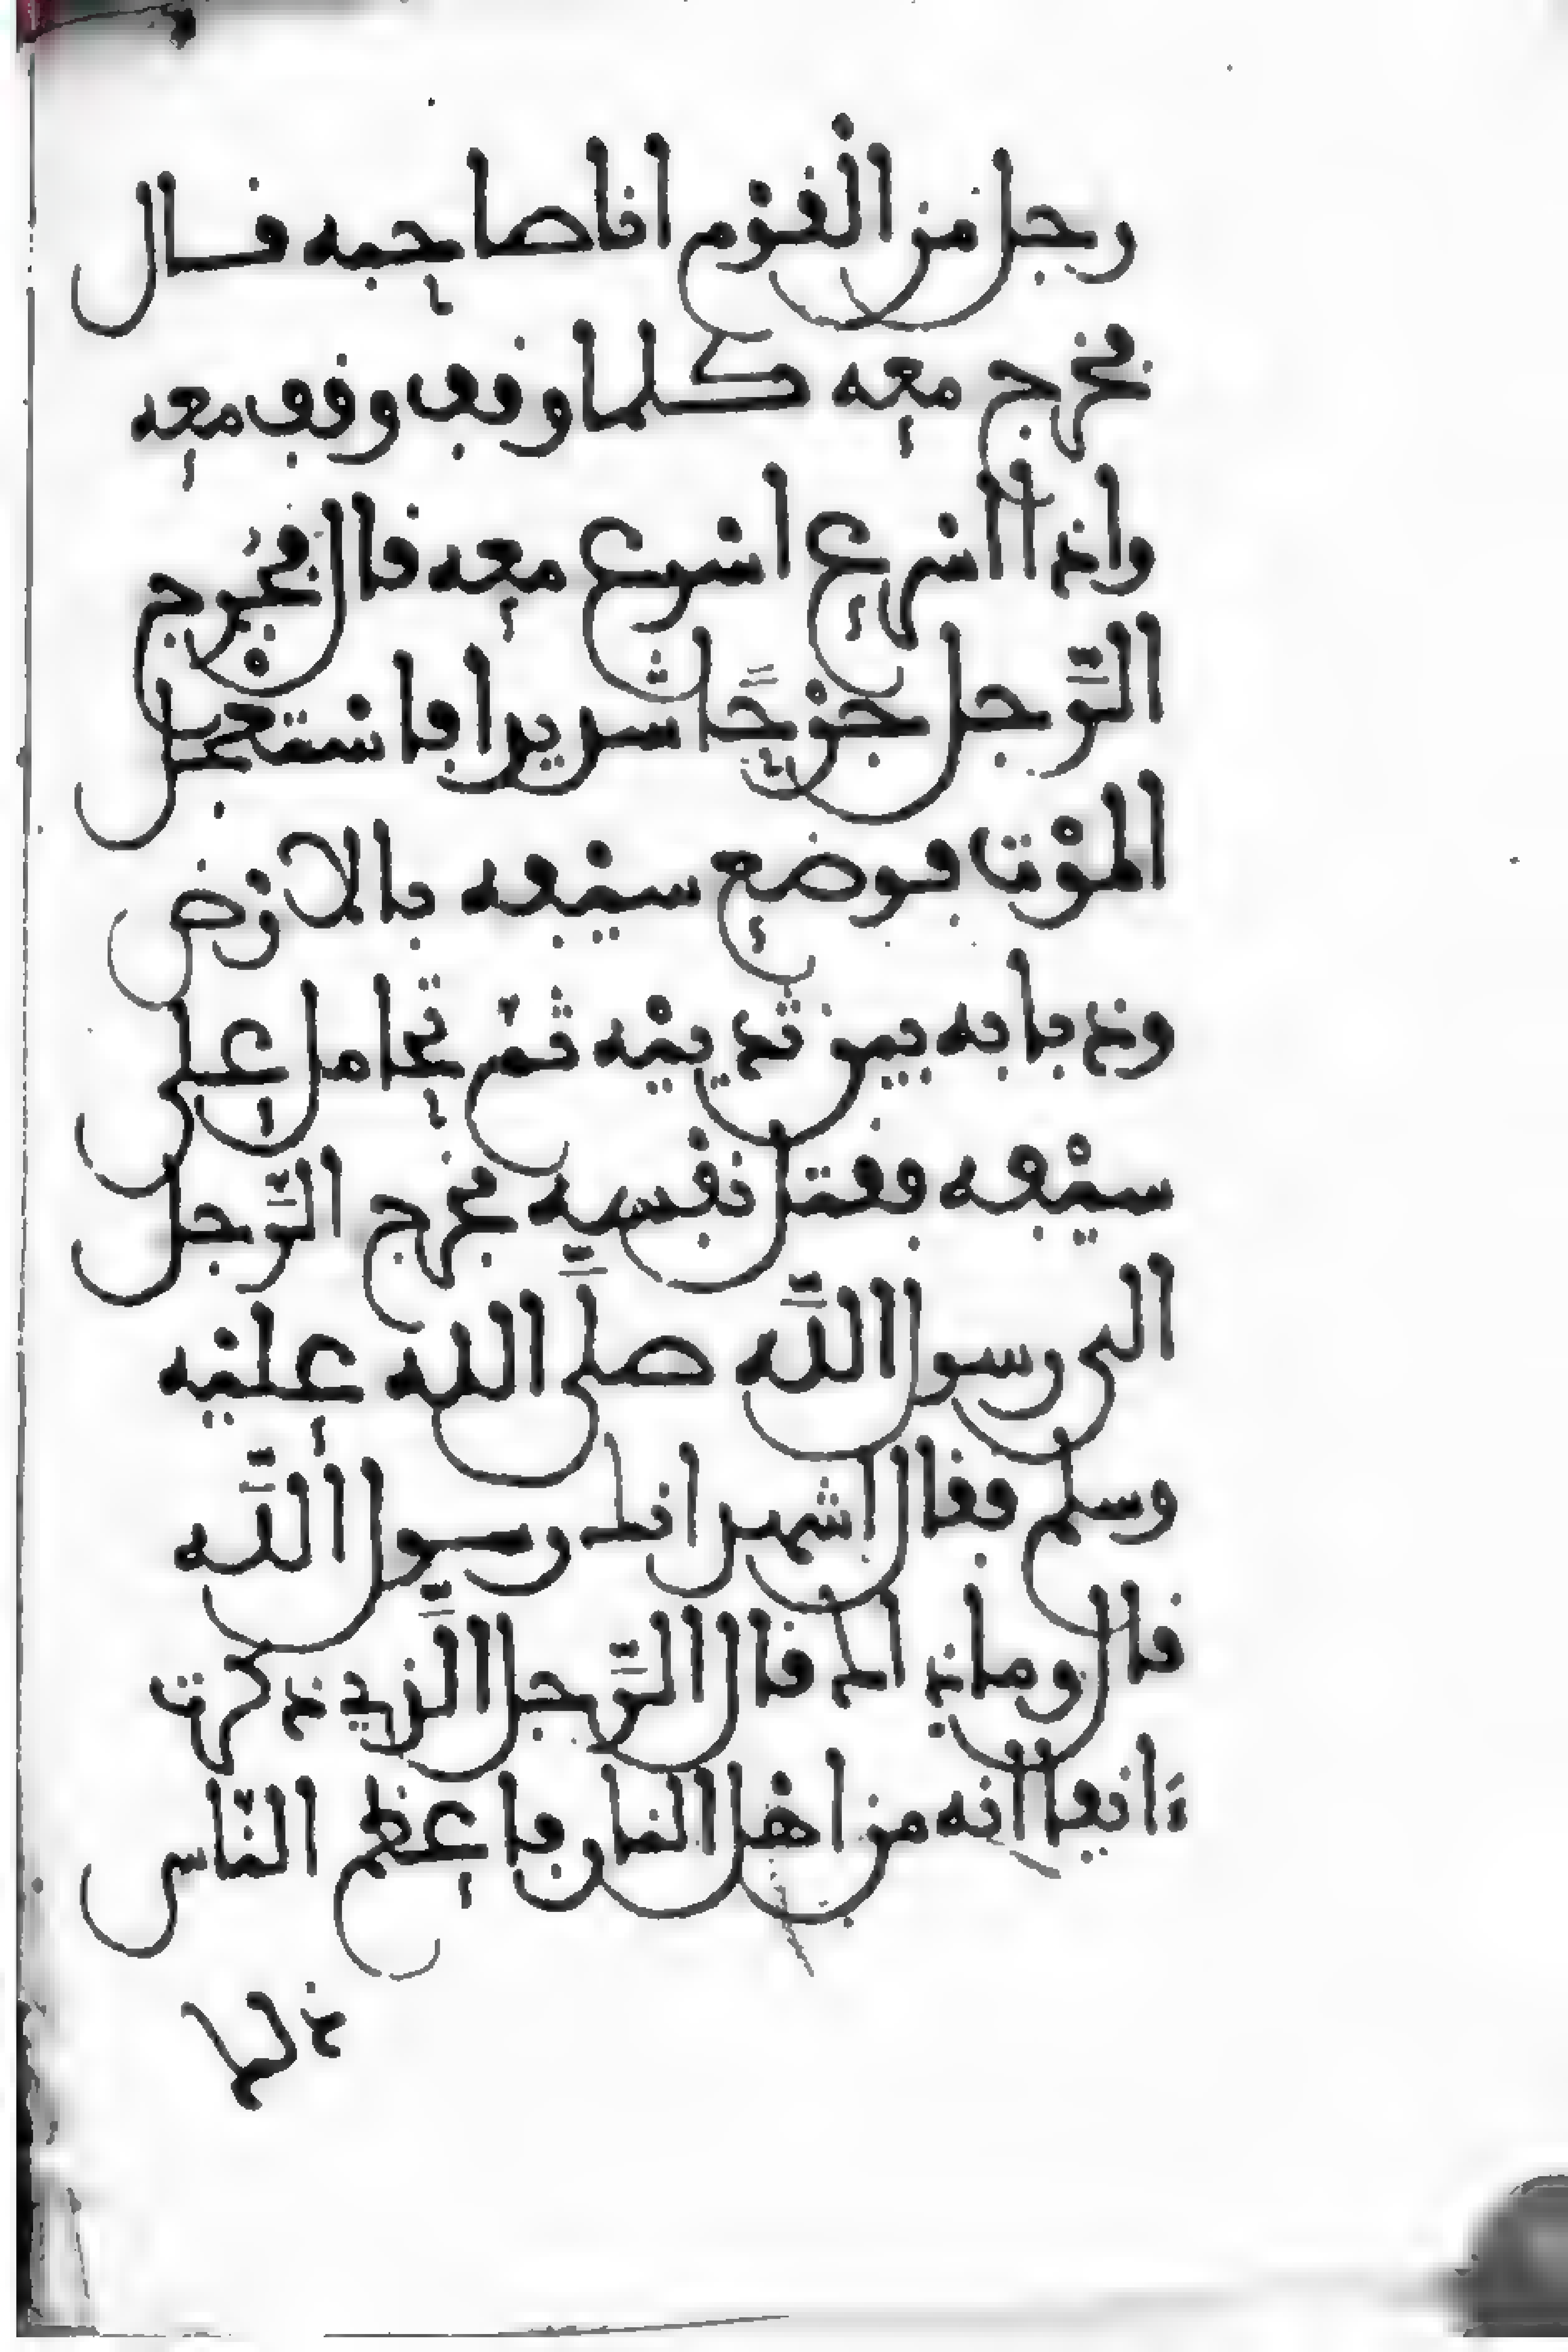 رجل من القوم انا صاحبه قال
فخرج معه كلما وقف وقف معه
واذا اسرع اسرع معه قال فخرج
الرّجل جرحًا شديدا فاستعجل
الموْت فوضع سيْفه بالارْض
وذبابه بين ثدييْه ثمّ تحامل على
سيْفه فقتل نفسه فخرج الرّجل
الى رسول اللّه صلّى الله عليْه
وسلم فقال اشهد انك رسول اللّه
قال وما ذاك قال الرّجل الذي ذكرت
ءانفا انه من اهْل النار فاعظم النّاس
ذلك